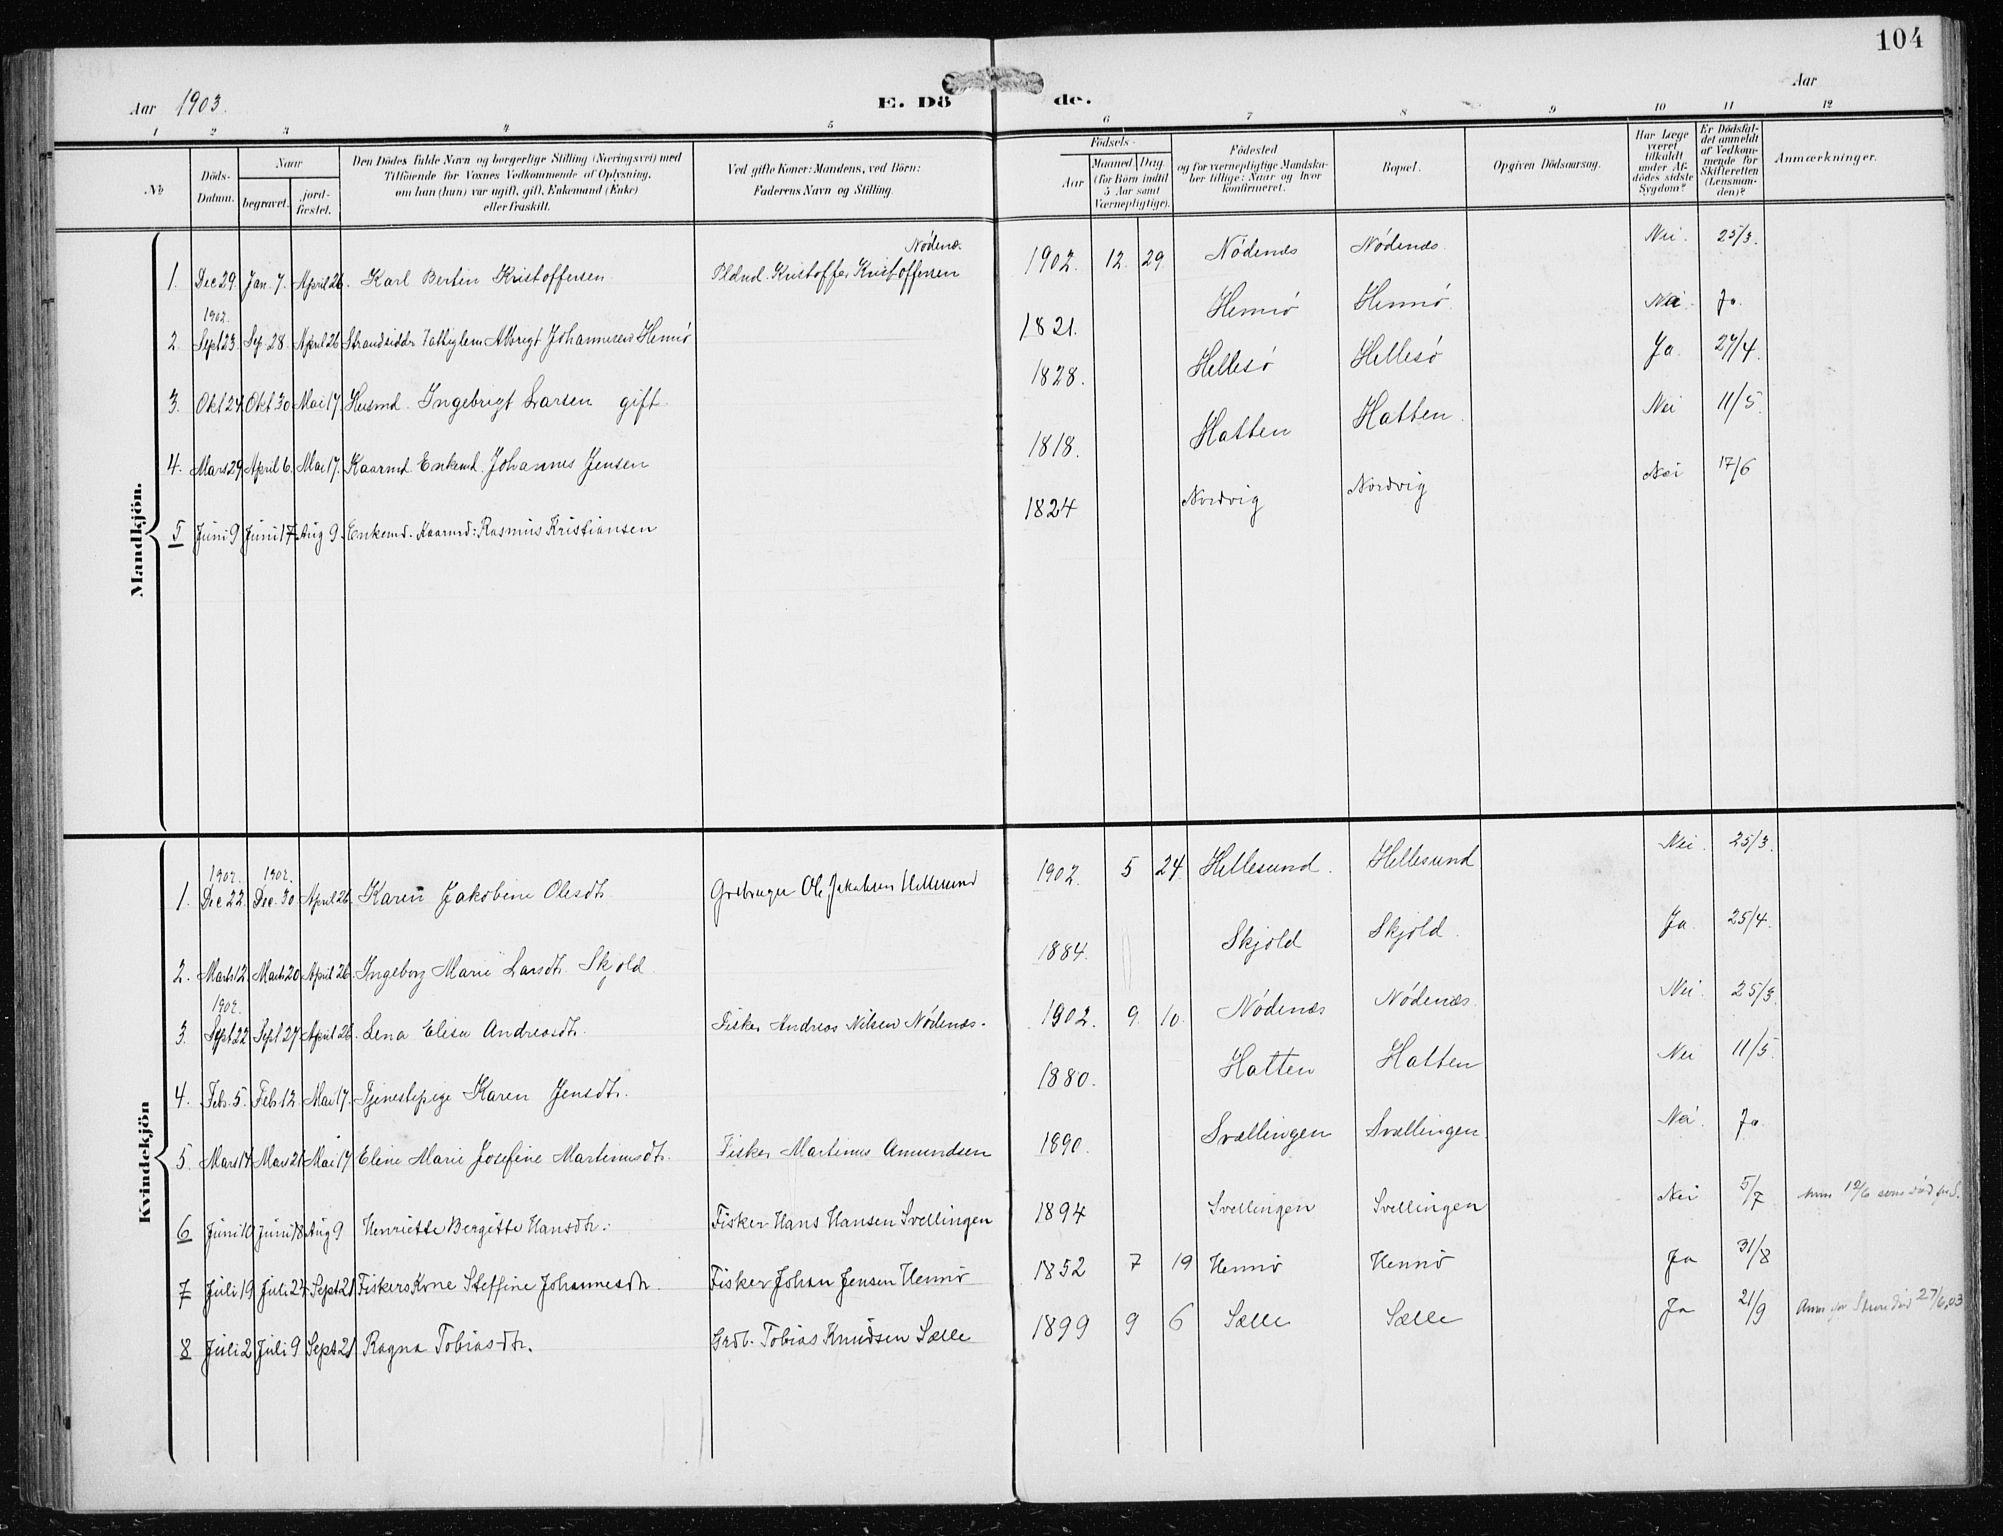 104
Aar 1903.
E. Dö de.
Aar
1 2 3 4 5 6 7 8 9 10 11 12
No
Döds-Datum.
Naar
begravet.
jord-fæstet.
Den Dödes fulde Navn og borgerlige Stilling (Næringsvei) med
Tilföiende for Voxnes Vedkommende af Oplysning,
om han (hun) var ugift, gift, Enkemand (Enke)
eller fraskilt.
Ved gifte Koner: Mandens, ved Börn:
Faderens Navn og Stilling.
Födsels-
Aar
Maaned Dag
(for Börn indtil
5 Aar samt
Værnepligtige).
Födested
og for værnepligtige Mandska-
ber tillige: Naar og hvor
konfirmeret.
Bopæl.
Opgiven Dödsaarsag.
Har Læge
været
tilkaldt
under Af-
dödes sidste
Sygdom?
Er Dödsfal-
det anmeldt
af Vedkom-
mende for
Skifteretten
(Lensman-
den)?
Anmærkninger.
Mandkjön.
Nödenæ.
1. Dec 29. Jan. 7. April 26. Karl Bertin Kristoffersen Kristoffer Kristoffersen 1902. 12. 29. Nödenæs Nödenæs. Nei. 25/3.
1902.
2. Sept 23. Sep. 28. April 26 Albrigt Johannesen Hennö 1821. Hennö Hennö. Nei. Ja.
3. Okt 24. Okt 30 Mai 17. Husmd. Ingebrigt Larsen gift 1828. Hellesö Hellesö Ja. 27/4.
4. Mars 29. April 6. Mai 17. Kaarmd. Enkemd. Johannes Jensen 1818. Hatten Hatten. Nei 11/5.
5 Juni 9 Juni 17 Aug 9. Enkemd. Kaarmd: Rasmus Kristiansen 1824 Nordvig Nordvig Nei 17/6
Kvindekjön
1902. 1902.
1. Dec 22. Dec. 30 April 26. Karen Jakobine Olesdtr. Ole Jakobsen Hellesund 1902. 5 24. Hellesund. Hellesund Nei. 25/3.
2. Marts 12. Marts 20. April 26. Ingeborg Marie Larsdtr. Skjold 1884. Skjold Skjold. Ja. 25/4.
1902.
3. Sept 22 Sept 27 April 26. Lena Elise Andreasdtr. Fisker Andreas Nilsen Nödenæs. 1902. 9. 10. Nödenæs Nödenæs. Nei. 25/3.
4. Feb. 5. Feb. 12. Mai 17. Tjenestepige Karen Jensdtr. 1880. Hatten Hatten Nei 11/5.
5. Mars 14 Mars 21 Mai 17 Eline Marie Josefine Martinusdtr. Fisker Martinus Amundsen 1890. Svællingen Svællingen. Nei. Ja.
6 Juni 10 Juni 18 Aug 9 Henriette Bergitte Hansdtr. Fisker Hans Hansen Svellingen 1894 Svellingen Svellingen Nei 5/7
7 Juli 19 Juli 24 Sept 21 Fiskers Kone Steffine Johannesdtr. Fisker Johan Jensen Hennö 1852 7 19 Hennö Hennö Ja 31/8
8 Juli 2 Juli 9 Sept 21 Ragna Tobiasdtr. Grdb. Tobias Knudsen Sælle 1899 9 6 Sælle Sælle Ja 21/9